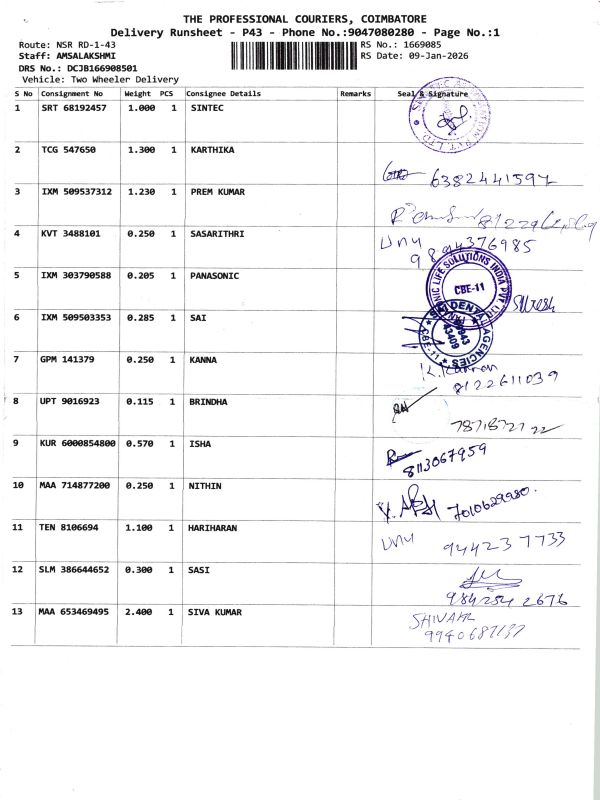 THE PROFESSIONAL COURIERS, COIMBATORE
Delivery Runsheet - P43 - Phone No.:9047080280 - Page No.:1
Route: NSR RD-1-43 RS No.: 1669085
Staff: AMSALAKSHMI RS Date: 09-Jan-2026
DRS No.: DCJB166908501
Vehicle: Two Wheeler Delivery
S No Consignment No Weight PCS Consignee Details Remarks Seal & Signature
1 SRT 68192457 1.000 1 SINTEC
2 TCG 547650 1.300 1 KARTHIKA
6382441597
3 IXM 509537312 1.230 1 PREM KUMAR
4 KVT 3488101 0.250 1 SASARITHRI
9894376985
5 IXM 303790588 0.205 1 PANASONIC
LIFE SOLUTIONS INDIA PVT. LTD
CBE-11
Suresh
6 IXM 509503353 0.285 1 SAI
DENTAL AGENCIES
CBE-11
7 GPM 141379 0.250 1 KANNA
K. Kannan
8122611039
8 UPT 9016923 0.115 1 BRINDHA
9 KUR 6000854800 0.570 1 ISHA
8113067959
10 MAA 714877200 0.250 1 NITHIN
7010629980.
11 TEN 8106694 1.100 1 HARIHARAN
944237733
12 SLM 386644652 0.300 1 SASI
984254 2676
13 MAA 653469495 2.400 1 SIVA KUMAR